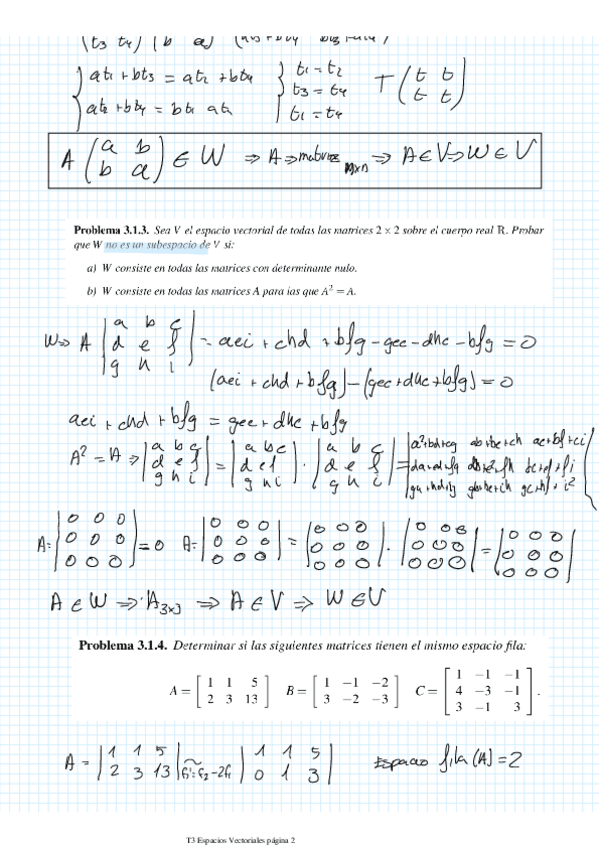 (t3 t4) (b a)
at1 + bt3 = at2 + bt4 t1 = t2
t3 = t4 T (t t
t t)
at2 + bt4 = bt1 at2 t1 = t4
A (a b
b a) ∈ W ⇒ A ⇒ matrices nxn ⇒ A ∈ V ⇒ W ∈ V
Problema 3.1.3. Sea V el espacio vectorial de todas las matrices 2 × 2 sobre el cuerpo real ℝ. Probar
que W no es un subespacio de V si:
a) W consiste en todas las matrices con determinante nulo.
b) W consiste en todas las matrices A para las que A² = A.
W ⇒ A |a b c
d e f
g h i| = aei + chd + bfg - gec - dhc - bfg = 0
(aei + chd + bfg) - (gec + dhc + bfg) = 0
aei + chd + bfg = gec + dhc + bfg
A² = A ⇒ |a b c
d e f
g h i| = |a b c
d e f
g h i| · |a b c
d e f
g h i| =
A = |0 0 0
0 0 0
0 0 0| = 0 A = |0 0 0
0 0 0
0 0 0| = |0 0 0
0 0 0
0 0 0| · |0 0 0
0 0 0
0 0 0| = |0 0 0
0 0 0
0 0 0|
A ∈ W ⇒ A3x3 ⇒ A ∈ V ⇒ W ∈ V
Problema 3.1.4. Determinar si las siguientes matrices tienen el mismo espacio fila:
A = [1 1 5
2 3 13] B = [1 −1 −2
3 −2 −3] C = [1 −1 −1
4 −3 −1
3 −1 3].
A = |1 1 5
2 3 13| f2 - 2f1 |1 1 5
0 1 3| Espacio fila (A) = 2
T3 Espacios Vectoriales página 2